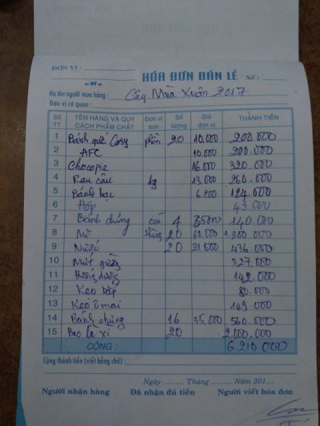 ĐƠN VỊ :
HÓA ĐƠN BÁN LẺ Số :
Họ tên người mua hàng : Cây Mùa Xuân 2017
Đơn vị cơ quan :
Số TT TÊN HÀNG VÀ QUY CÁCH PHẨM CHẤT Đơn vị tính Số lượng Giá đơn vị THÀNH TIỀN
1 Bánh quế Cosy phần 20 10.000 200.000
2 AFC 10.000 200.000
3 Chocopie 16.000 320.000
4 Rau câu kg 13.000 260.000
5 Bánh bạc 6.200 124.000
6 Hộp 43.000
7 Bánh chưng cái 4 35000 140.000
8 Mì thùng 20 1.200.000
9 20 436.000
10 Mứt gừng 327.000
11 142.000
12 Kẹo 80.000
13 Kẹo ô mai 149.000
14 Bánh chưng 16 35.000 560.000
15 Bao lì xì 20 2.000.000
CỘNG : 6.210.000
Cộng thành tiền (viết bằng chữ) :
Ngày ........ Tháng ........ Năm 201...
Người nhận hàng Đã nhận đủ tiền Người viết hóa đơn